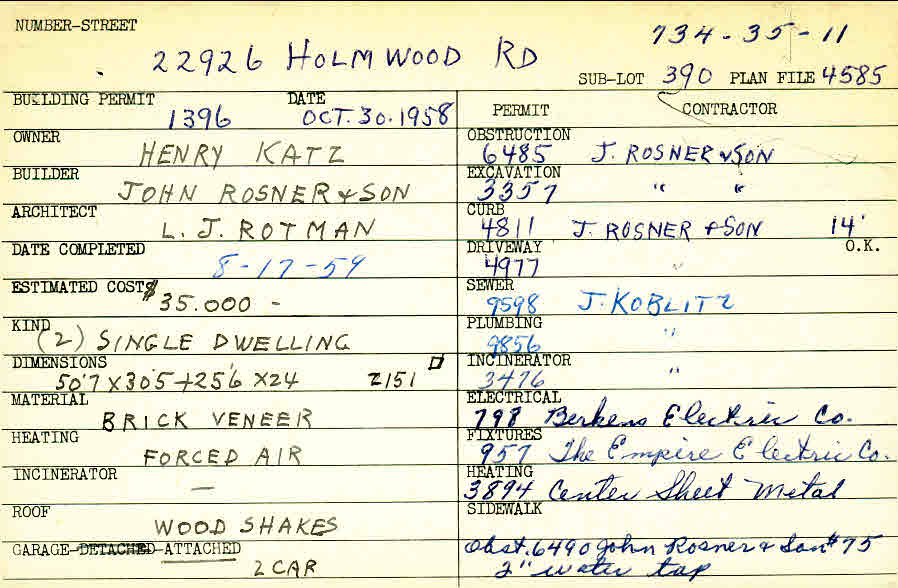 NUMBER-STREET
734-35-11
22926 HOLMWOOD RD
SUB-LOT 390 PLAN FILE 4585
BUILDING PERMIT 1396 DATE OCT. 30. 1958
OWNER
HENRY KATZ
BUILDER
JOHN ROSNER & SON
ARCHITECT
L. J. ROTMAN
DATE COMPLETED
8-17-59
ESTIMATED COST $
35.000 -
KIND
(2) SINGLE DWELLING
DIMENSIONS
50'7 X 30'5 + 25'6 X 24 2151 □
MATERIAL
BRICK VENEER
HEATING
FORCED AIR
INCINERATOR
—
ROOF
WOOD SHAKES
GARAGE-DETACHED-ATTACHED
2 CAR
PERMIT CONTRACTOR
OBSTRUCTION
6485 J. ROSNER & SON
EXCAVATION
3357 " "
CURB
4811 J. ROSNER & SON 14'
DRIVEWAY O.K.
4977 "
SEWER
9598 J. KOBLITZ
PLUMBING
9856 "
INCINERATOR
3476 "
ELECTRICAL
798 Berkens Electric Co.
FIXTURES
957 The Empire Electric Co.
HEATING
3894 Center Sheet Metal
SIDEWALK
Obst. 6490 John Rosner & Son #75
2" water tap